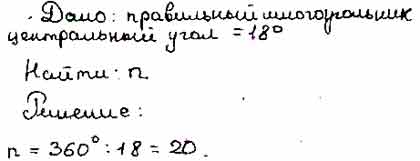 Дано: правильный многоугольник
центральный угол = 18°
Найти: n
Решение:
n = 360° : 18 = 20.